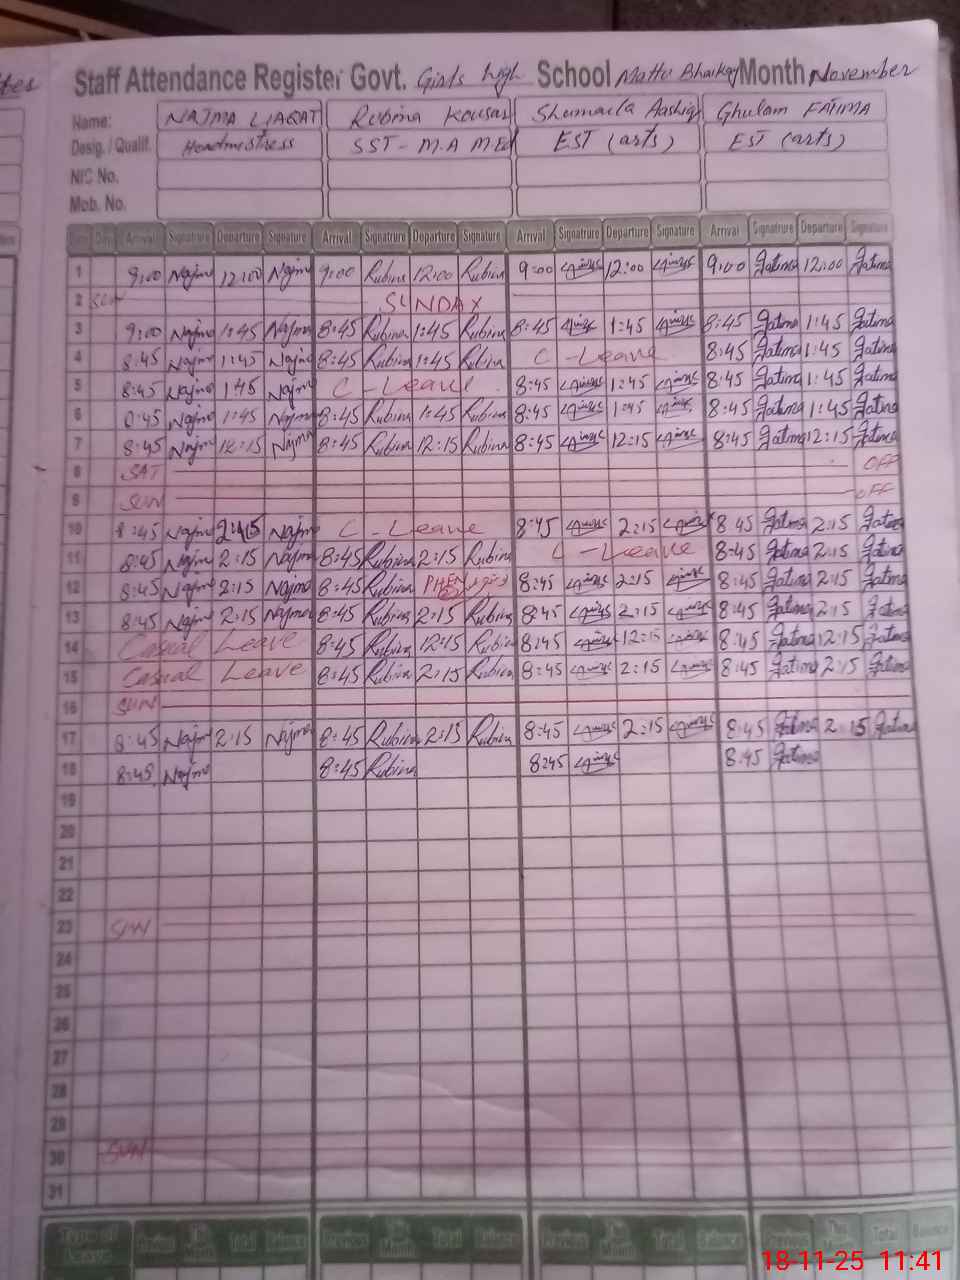 Staff Attendance Register Govt. Girls high School Mattu Bhaikay Month November
Name: NAJMA LIAQAT Rubina Kousar Shumaila Aashiq Ghulam FATIMA
Desig. / Qualif. Headmistress SST - M.A M.Ed EST (arts) EST (arts)
NIC No.
Mob. No.
Date Day Arrival Signatrure Departure Signature Arrival Signatrure Departure Signature Arrival Signatrure Departure Signature Arrival Signatrure Departure Signature
1 9:00 Najma 12:00 Najma 9:00 Rubina 12:00 Rubina 9:00 12:00 9:00 Fatima 12:00 Fatima
2 SUN SUNDAY
3 9:00 Najma 1:45 Najma 8:45 Rubina 1:45 Rubina 8:45 1:45 8:45 Fatima 1:45 Fatima
4 8:45 Najma 1:45 Najma 8:45 Rubina 1:45 Rubina C - Leave 8:45 Fatima 1:45 Fatima
5 8:45 Najma 1:45 Najma C - Leave 8:45 1:45 8:45 Fatima 1:45 Fatima
6 1:45 Najma 8:45 Rubina 1:45 Rubina 8:45 1:45 8:45 Fatima 1:45 Fatima
7 8:45 Najma 12:15 Najma 8:45 Rubina 12:15 Rubina 8:45 12:15 8:45 Fatima 12:15 Fatima
8 SAT OFF
9 SUN OFF
10 8:45 Najma Najma C - Leave 8:45 2:15 8:45 Fatima 2:15 Fatima
11 8:45 Najma 2:15 Najma 8:45 Rubina 2:15 Rubina C - Leave 8:45 Fatima 2:15 Fatima
12 8:45 Najma 2:15 Najma 8:45 Rubina 8:45 2:15 8:45 Fatima 2:15 Fatima
13 8:45 Najma 2:15 Najma 8:45 Rubina 2:15 Rubina 8:45 2:15 8:45 Fatima 2:15 Fatima
14 Casual Leave 8:45 Rubina 12:15 Rubina 8:45 12:15 8:45 Fatima 12:15 Fatima
15 Casual Leave 8:45 Rubina 2:15 Rubina 8:45 2:15 8:45 Fatima 2:15 Fatima
16 SUN
17 8:45 Najma 2:15 Najma 8:45 Rubina 2:15 Rubina 8:45 2:15 8:45 Fatima 2:15 Fatima
18 8:45 Najma 8:45 Rubina 8:45 8:45 Fatima
19
20
21
22
23 SUN
24
25
26
27
28
29
30 SUN
31
Type of Leave Previous This Month Total Balance Previous This Month Total Balance Previous This Month Total Balance Previous This Month Total Balance
18-11-25 11:41